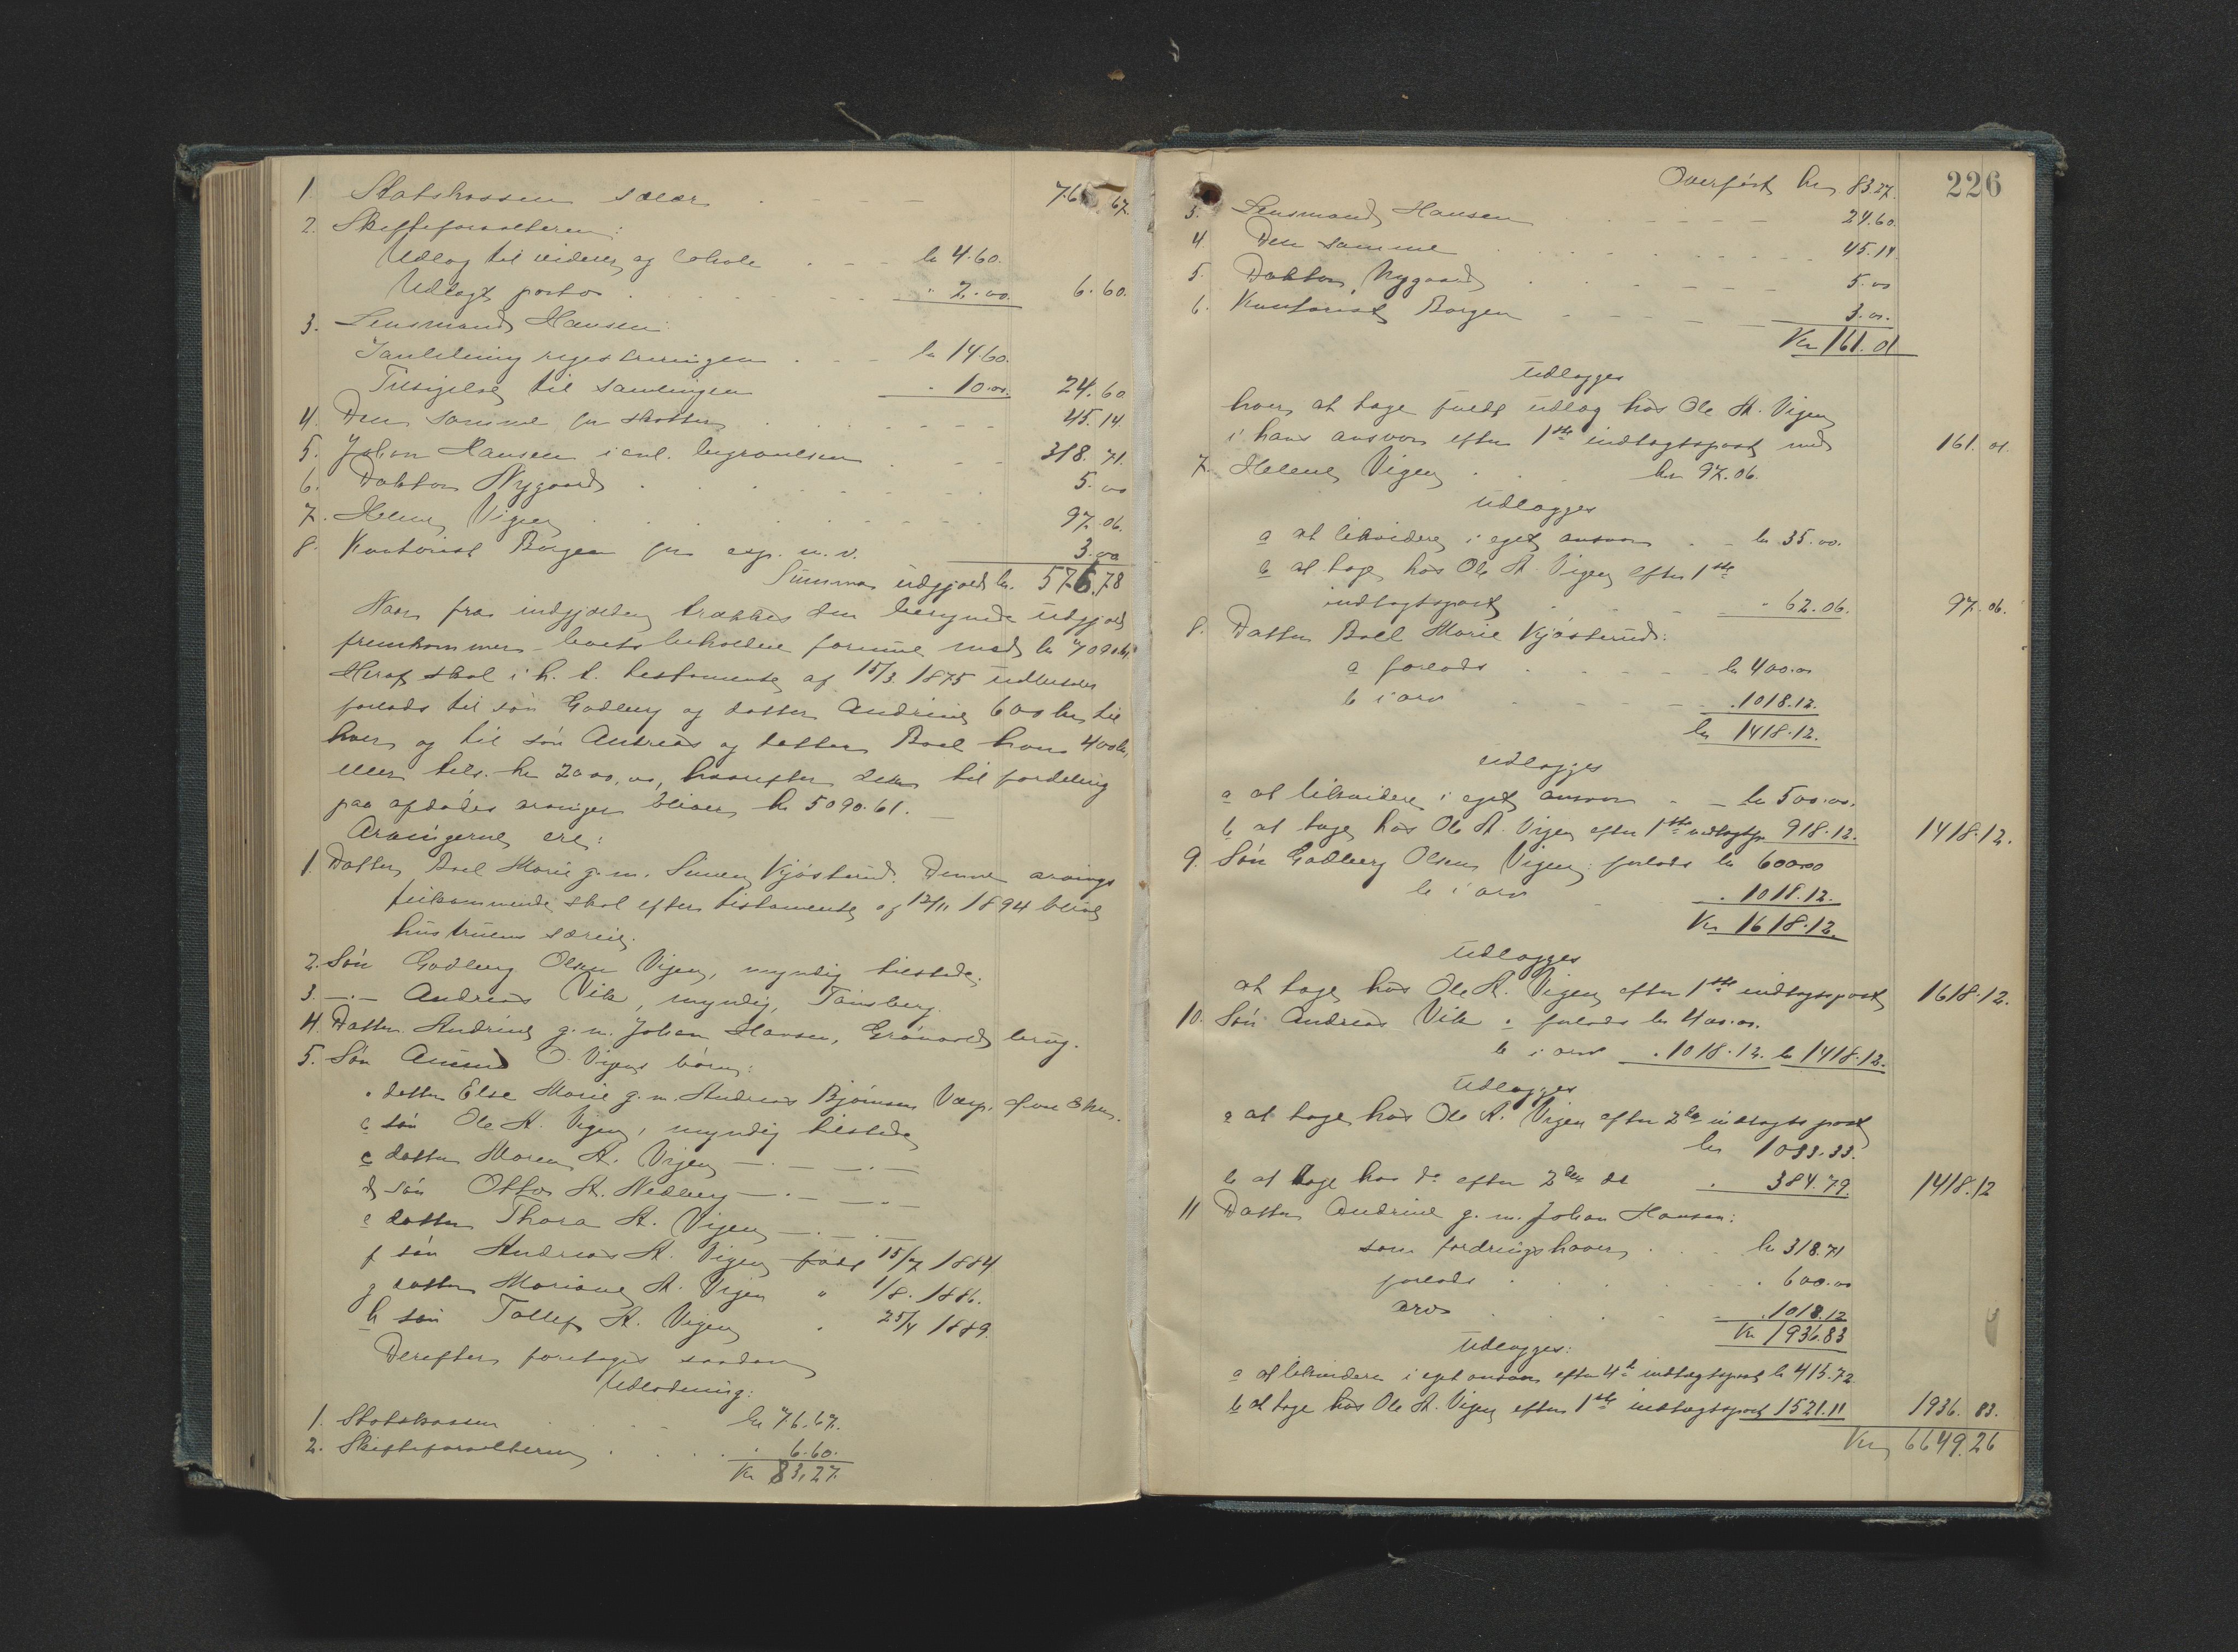 1. Statskassen salær 76 67.
2. Skifteforvalteren:
Udlæg til vidner og lokale kr 4.60.
Udlagt porto " 2.00. 6.60.
3. Lensmand Hansen:
registreringen kr 14.60.
Tilsigelse til samlingen " 10.00. 24.60
4. Den samme for skatter 45.14.
5. Johan Hansen incl. begravelsen 318.71.
6. Doktor Nygaard 5.00
7. Helene Vigen 97.06.
8. Kontorist Borgen for exp. m. v. 3.00
Summa udgjæld kr. 576.78
Naar fra indgjælden trækkes den udgjæld
fremkommer boets beholdne formue med kr 7090.61
Heraf skal i h. t. testamente af 15/3 1875 udlæses
forlods til søn Godberg og datter Andrine 600 kr til
hver og til søn Andreas og datter Boel hver 400 kr,
eller tils. kr 2000,00, hvorefter der til fordeling
paa afdødes arvinger bliver kr 5090.61.
Arvingerne ere:
1. Datter Boel Marie g. m. Simen Kjøsterud. Denne arvings
tilkommende skal efter testamente af 12/11 1894 blive
hustruens særeie.
2. Søn Godberg Olsen Vigen, myndig tilstede.
3. -"- Andreas Vik, myndig, Tønsberg.
4. Datter Andrine g. m. Johan Hansen, Grønvolds brug.
5. Søn Amund O. Vigens børn:
a datter Else Marie g. m. Andreas Bjørnsen
b søn Ole A. Vigen, myndig tilstede
c datter Maren A. Vigen -"- -"-
d søn Otto A. Nedberg -"- -"-
e datter Thora A. Vigen -"- -"-
f søn Andreas A. Vigen født 15/7 1884
g datter Mariane A. Vigen " 1/8. 1886.
h søn Tollef A. Vigen " 25/4 1889.
Derefter foretages saadan
Udlodning:
1. Statskassen kr 76.67.
2. Skifteforvalteren " 6.60.
Kr 83,27.
226
Overført kr 83.27.
3. Lensmand Hansen 24.60.
4. Den samme 45.14
5. Doktor Nygaard 5.00
6. Kontorist Borgen 3.00.
Kr 161.01
Udlægges
hver at tage fuldt udlæg hos Ole A. Vigen
i hans ansvar efter 1ste indtægtspost med 161.01.
7. Helene Vigen kr 97.06.
Udlægges
a at likvidere i eget ansvar kr 35.00.
b at tage hos Ole A. Vigen efter 1ste
indtægtspost " 62.06. 97.06.
8. Datter Boel Marie Kjøsterud:
a forlods kr 400.00
b i arv " 1018.12.
kr 1418.12.
Udlægges
a at likvidere i eget ansvar kr 500.00.
b at tage hos Ole A. Vigen efter 1ste indtægtsp. 918.12. 1418.12.
9. Søn Godberg Olsen Vigen: forlods kr 600.00
b i arv " 1018.12.
Kr 1618.12.
Udlægges
at tage hos Ole A. Vigen efter 1ste indtægtspost 1618.12.
10. Søn Andreas Vik a forlods kr 400.00.
b i arv " 1018.12. kr 1418.12.
Udlægges
a at tage hos Ole A. Vigen efter 2de indtægtspost
kr 1033.33.
b at tage hos do efter do " 384.79. 1418.12
11 Datter Andrine g. m. Johan Hansen:
som fordringshaver kr 318.71
forlods " 600.00
arv " 1018.12
Kr 1936.83
Udlægges:
a at likvidere i eget ansvar efter 4de indtægtspost kr 415.72
b at tage hos Ole A. Vigen efter 1ste indtægtspost 1521.11 1936.83.
Kr 6649.26